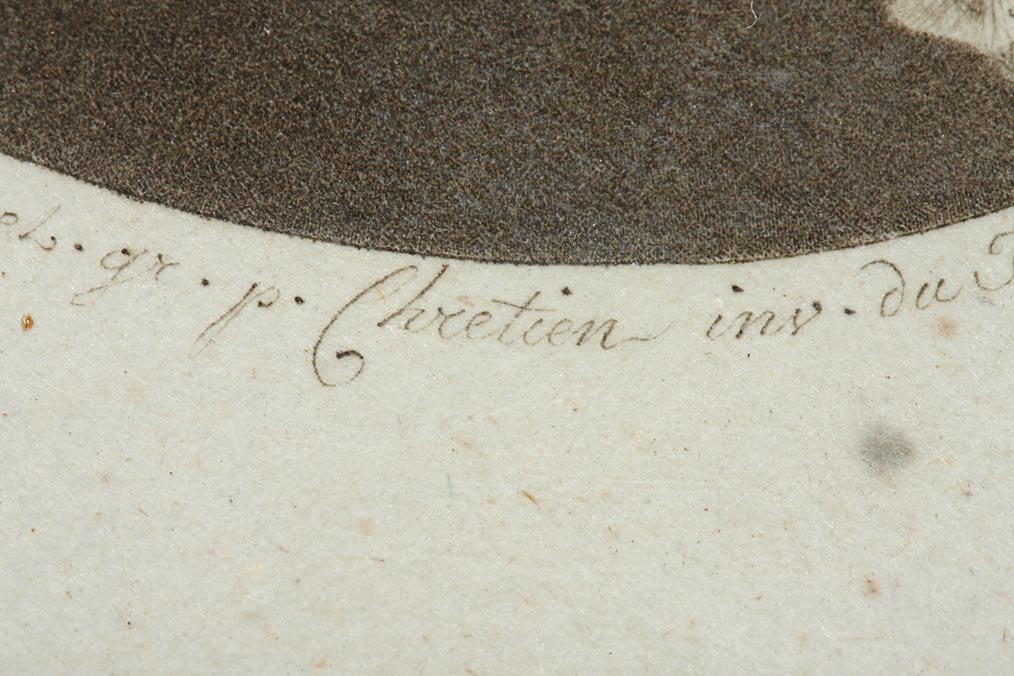 et. gr. p. Chretien inv. du